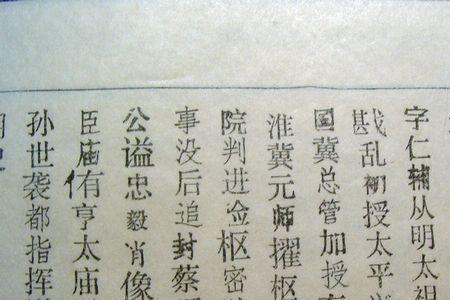 字仁辅从明太祖
戡乱初授太平兴
国冀总管加授
淮冀元师擢枢
院判进佥枢密
事没后追封蔡
公谥忠毅肖像
臣庙侑亨太庙
孙世袭都指挥